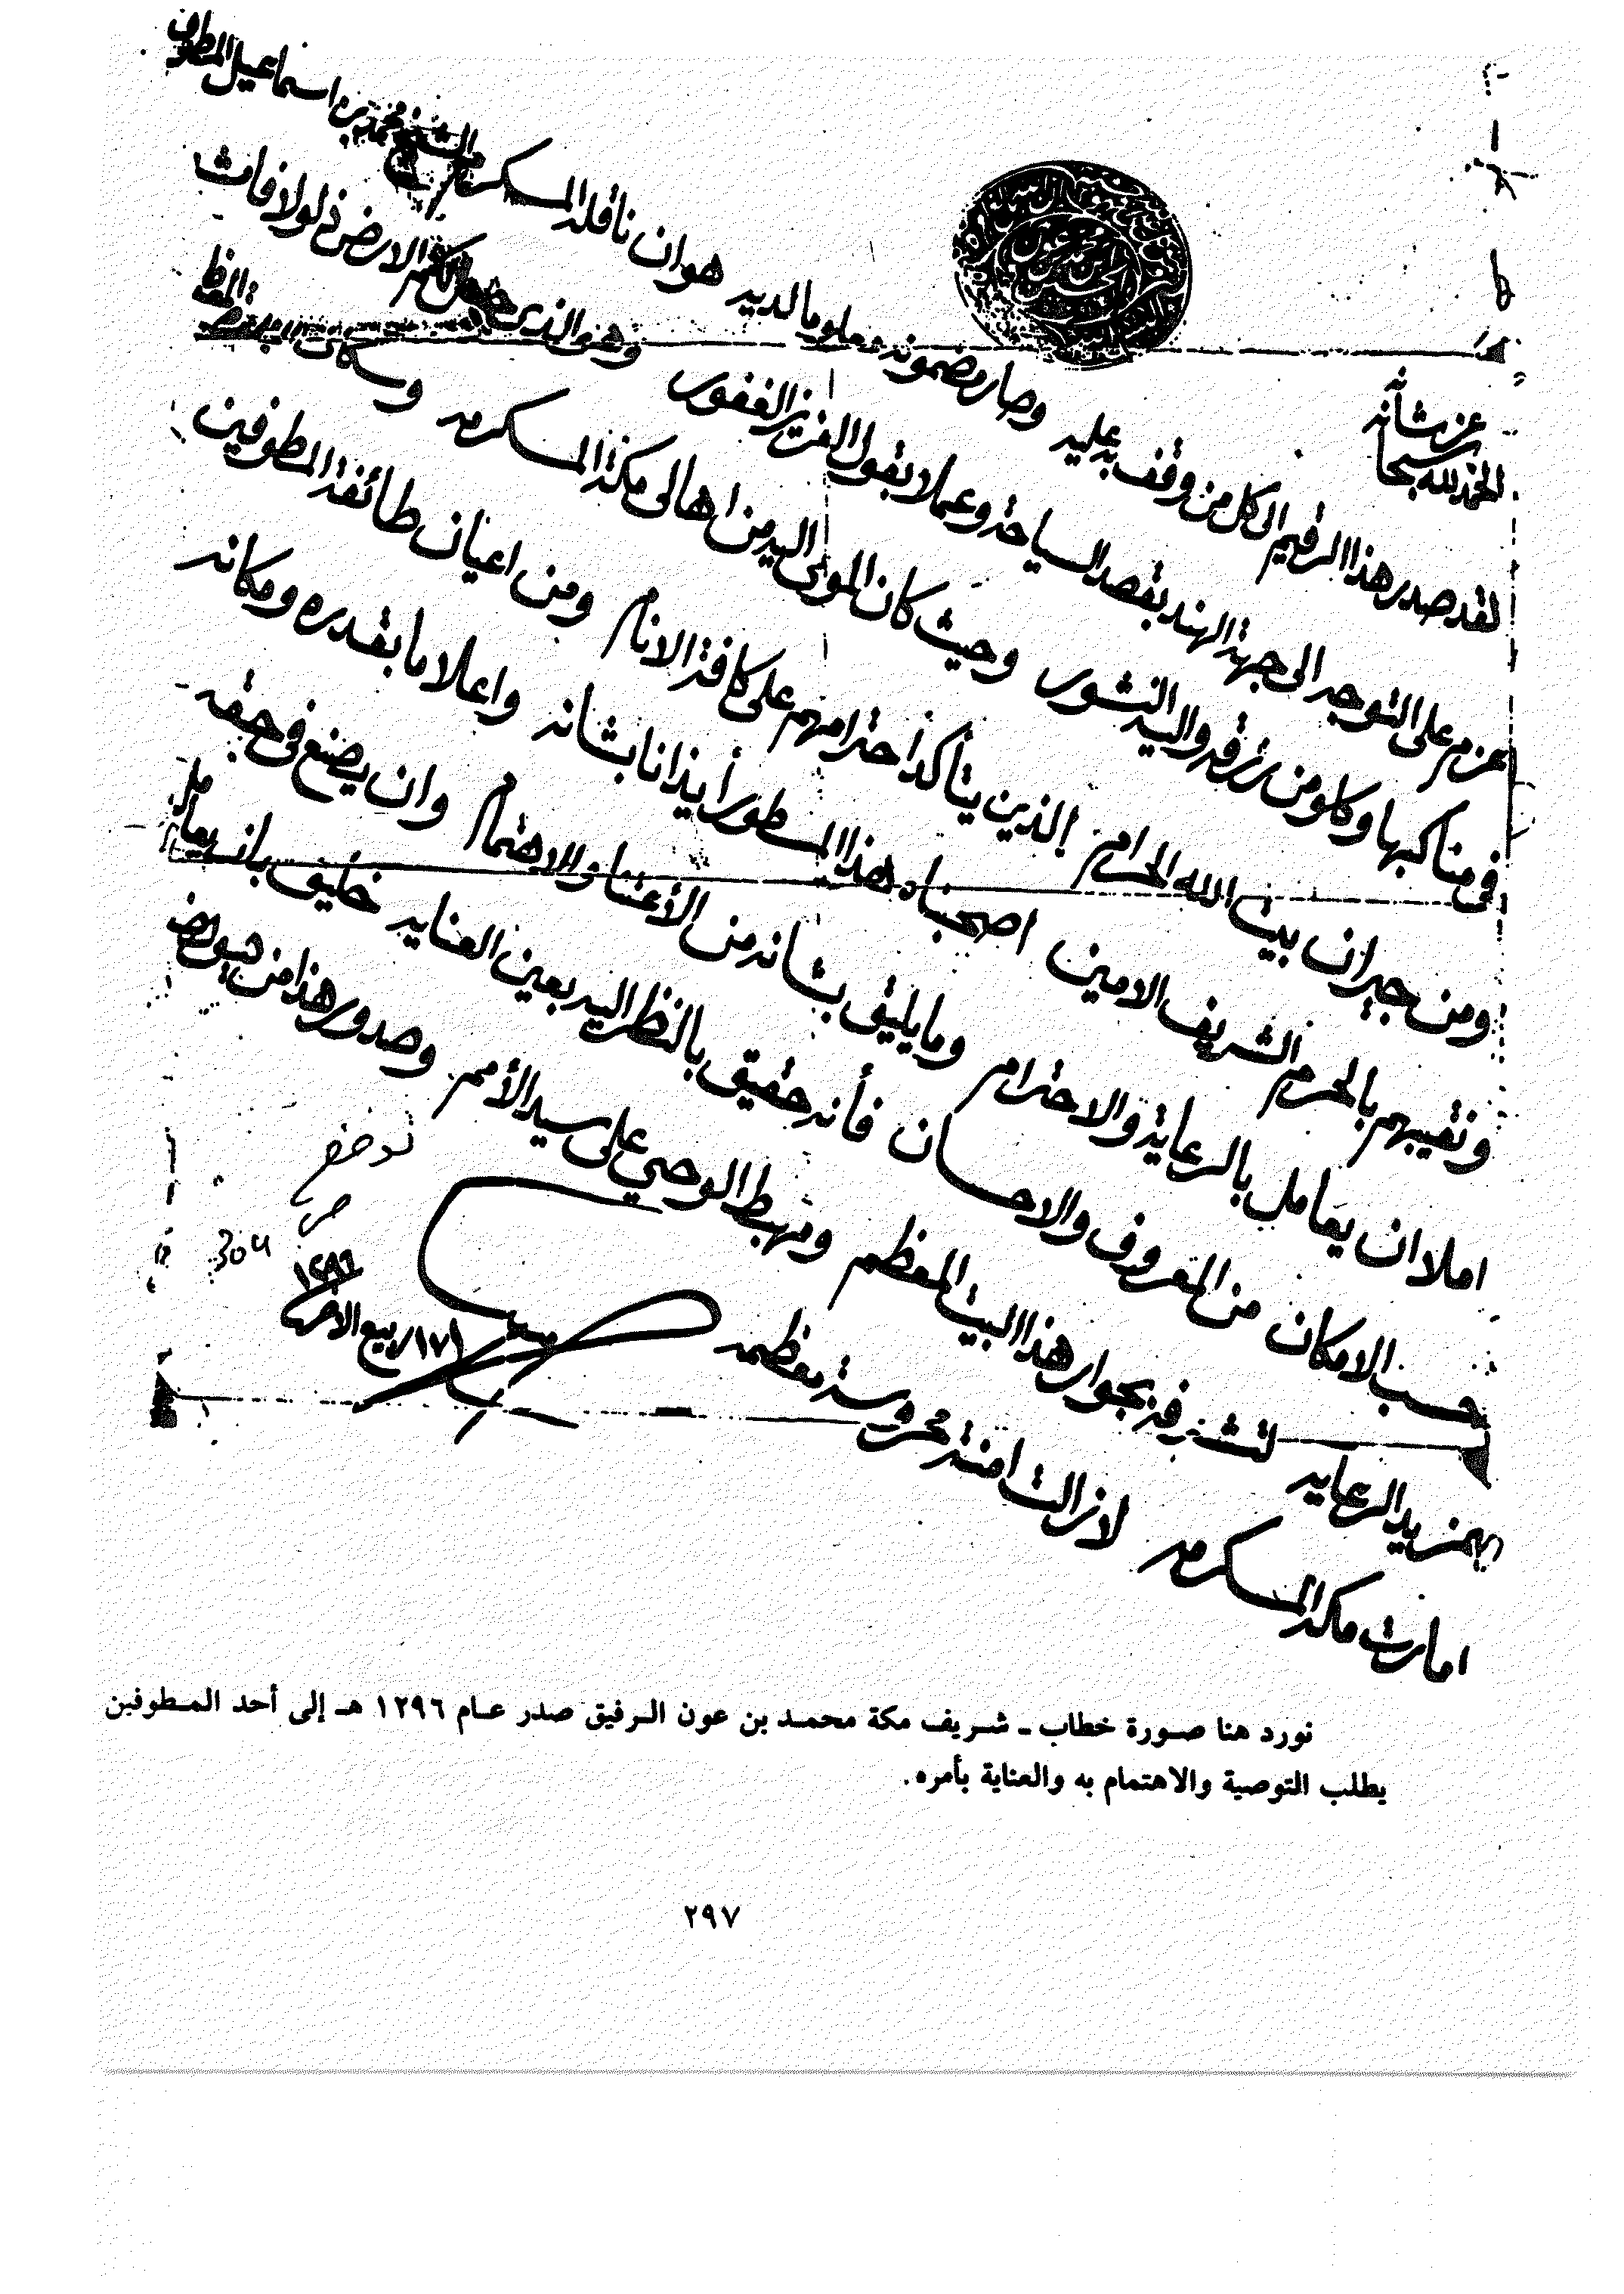 الحمد لله سبحانه
عز شأنه
لقد صدر هذا الرقيم الى كل من وقف به عليه وصار مضمونه معلوما لديه هو ان ناقله المكرم الشيخ محمد بن اسماعيل المطوف
عزم على التوجه الى جهة الهند بقصد السياحة وعملا بقول العزيز الغفور وهو الذي جعل لكم الارض ذلولا فامشوا
في مناكبها وكلو من رزقه واليه النشور وحيث كان المومى اليه من اهالى مكة المكرمه وسكان
ومن جيران بيت الله الحرام الذين يتأكد احترامهم على كافة الانام ومن اعيان طائفة المطوفين
ونقيبهم بالحرم الشريف الامين اصحبناه لهذا المسطور أيذانا بشانه واعلاما بقدره ومكانه
املا ان يعامل بالرعاية والاحترام وما يليق بشانه من الأعتنا والاهتمام وان يصنع في حقه
حسب الامكان من المعروف والاحسان فأنه حقيق بالنظر اليه بعين العنايه خليق بان يعامل
بمزيد الرعايه لتشرفه بجوار هذا البيت المعظم ومهبط الوحي على سيد الأمم وصدور هذا من
امارت مكة المكرمه لازالت امنة محروسة معظمه
ربيع الاخر
١٢٩٦
نورد هنا صورة خطاب ـ شريف مكة محمد بن عون الرفيق صدر عام ١٢٩٦ هـ إلى أحد المطوفين
يطلب التوصية والاهتمام به والعناية بأمره.
٢٩٧